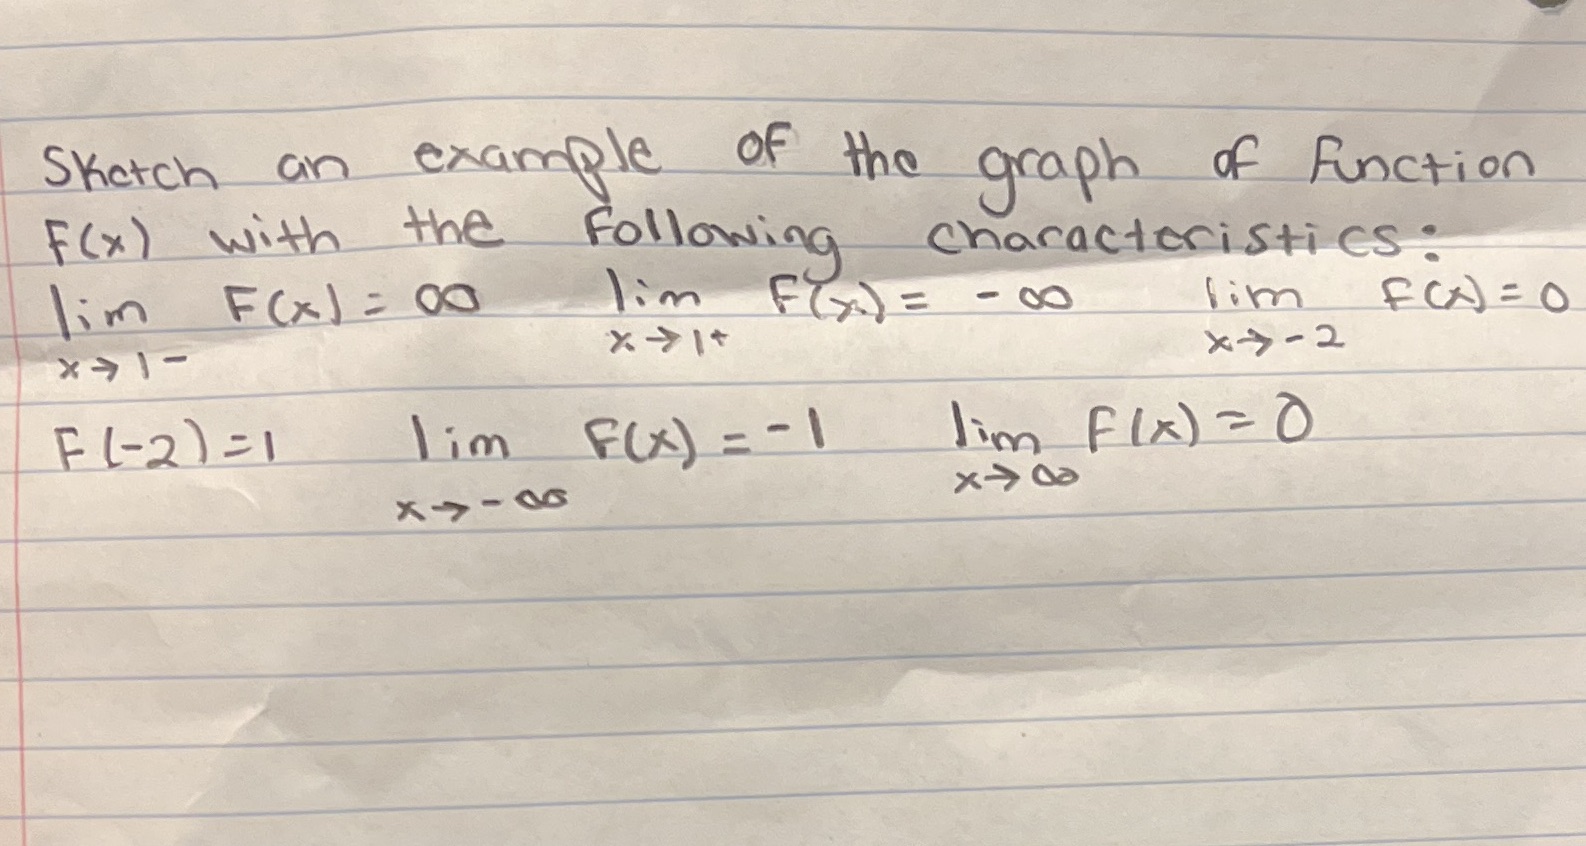 Sketch an example of the graph of function
F(x) with the following characteristics:
lim F(x) = ∞ lim F(x) = -∞ lim F(x) = 0
x→1- x→1+ x→-2
F(-2) = 1 lim F(x) = -1 lim F(x) = 0
x→-∞ x→∞